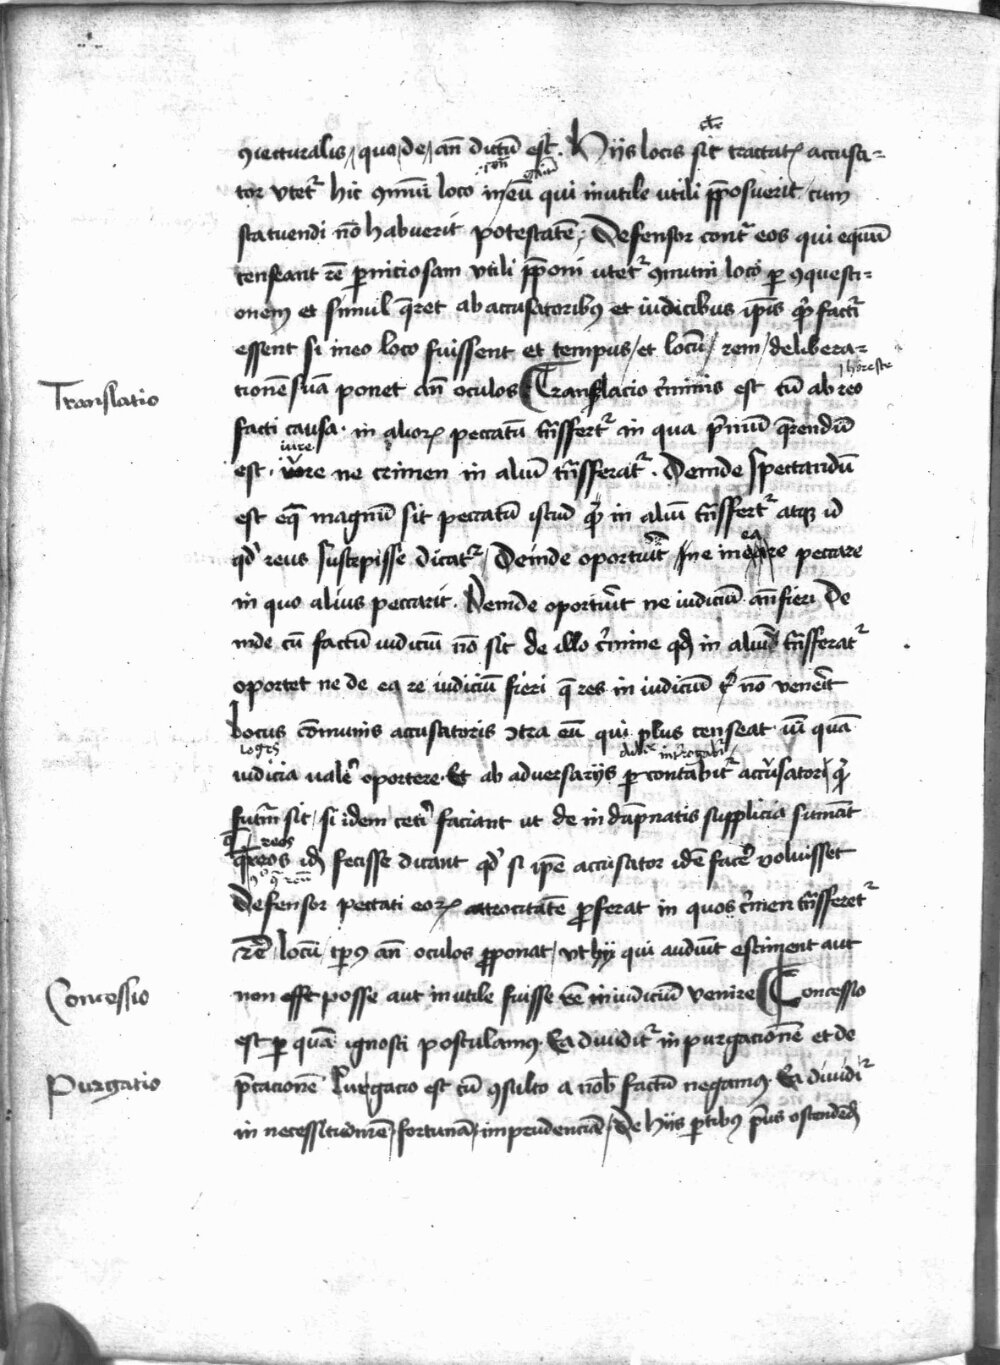 ꝯiecturalis / qua / de / an̄ dictū est. Hijs locis sic tractatꝭ accusa=
tor vtetr̉ hic ꝯmuni loco in eū qui inutile utili p̄posuerit cum
statuendi nō habuerit potestatē / Defensor contr̉ eos qui equū
censeant rē p̄niciosam vtili p̄poni utetr̉ ꝯmuni loco p̱ ꝯquesti=
onem et simul q̄ret ab accusatoribꝰ et iudicibus ip̄is qͥd factr̉i
essent si in eo loco fuissent et tempus / et locū / rem / delibera=
horeste
Translatio
tionē suā ponet an̄ oculos Translacio cͥminis est cū ab reo
facti causa in alioꝝ peccatū trāsfertr̉ in qua pͥmū q̄rendū
iure
est iure ne crimen in aliū trāsferatr̉. Deinde spectandū
est eq̄ magnū sit peccatū istud qd̄ in aliū trāsfertr̉ atqꝫ id
ea
qd̄ reus suscepisse dicatr̉ / Deinde oportuit̄ ne in ea re peccare
in quo alius peccarit. Deinde oportuit̄ ne iudiciū an̄ fieri De
inde cū factū iudiciū nō sit de illo cͥmine qd̄ in aliū trāsferatr̉
oportet ne de ea re iudiciū fieri q̄ res in iudiciū nō venerit
Locus cōmunis accusatoris ↄtra eū qui plus censeat uī quā
iudicia ualer̉e oportere. Et ab adversarijs p̱contabitr̉ accusator qͥd
futur̄m sit / si idem ceteri faciant ut de indāpnatis supplicia sumāt
reos
q̄ eos id̄ fecisse dicant qd̄ si ip̄e accusator idē facer̉e voluisset
Defensor peccati eoꝝ atrocitatē p̱ferat in quos cͥmen trāsferetr̉
rē / locū / tp̱ꝰ an̄ oculos p̱ponat / vt hij qui audiūt estiment aut
Concessio
non esse posse aut inutile fuisse rē in iudiciū venire Concessio
est p̱ quā ignosci postulamꝰ. Ea diuiditr̉ in purgacionē et de
Purgatio
p̄cacionē Purgacio est cū ꝯsulto a nob̄ factū negamꝰ Ea diuidir̉
in necessitudinē / fortunā / imprudenciā / De hijs p̱tibꝰ pͥus ostendēd̄